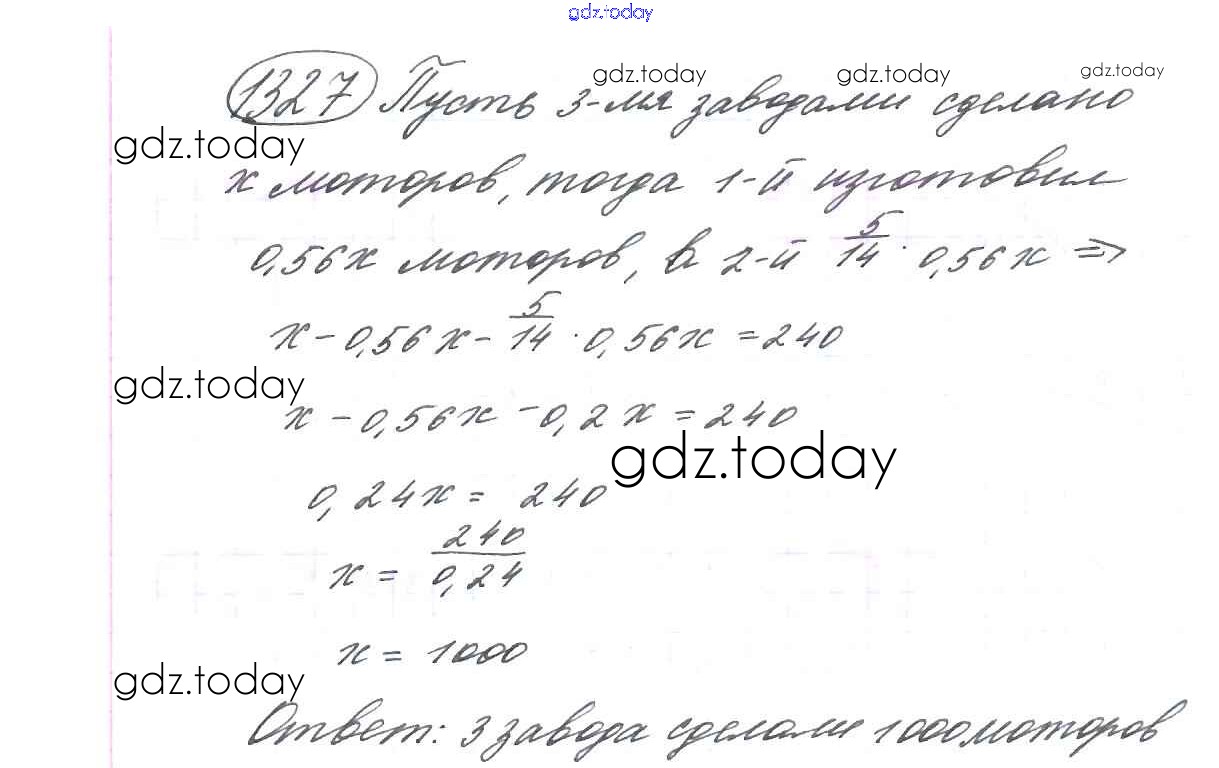 gdz.today
1327 Пусть 3-мя заводами сделано
gdz.today gdz.today gdz.today
gdz.today
х моторов, тогда 1-й изготовил
0,56х моторов, а 2-й 5/14 · 0,56х ⇒
х - 0,56х - 5/14 · 0,56х = 240
gdz.today
х - 0,56х - 0,2х = 240
gdz.today
0,24х = 240
х = 240/0,24
х = 1000
gdz.today
Ответ: 3 завода сделали 1000 моторов